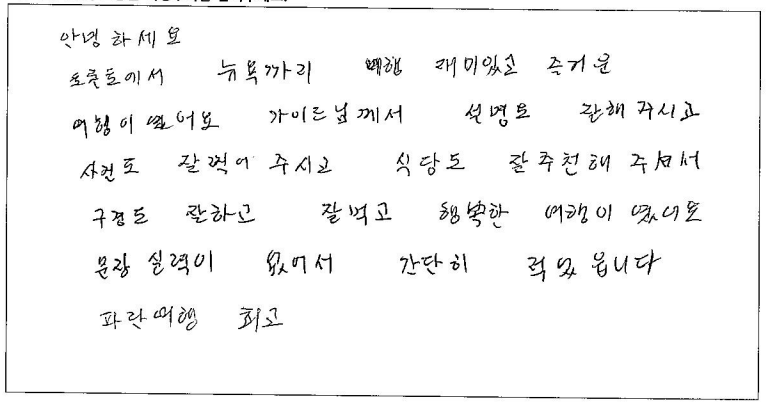 안녕하세요
토론토에서 뉴욕까지 여행 재미있고 즐거운
여행이였어요 가이드님께서 설명도 잘해주시고
사진도 잘찍어 주시고 식당도 잘추천해 주셔서
구경도 잘하고 잘먹고 행복한 여행이였어요
문장 실력이 없어서 간단히 적었읍니다
파란여행 최고